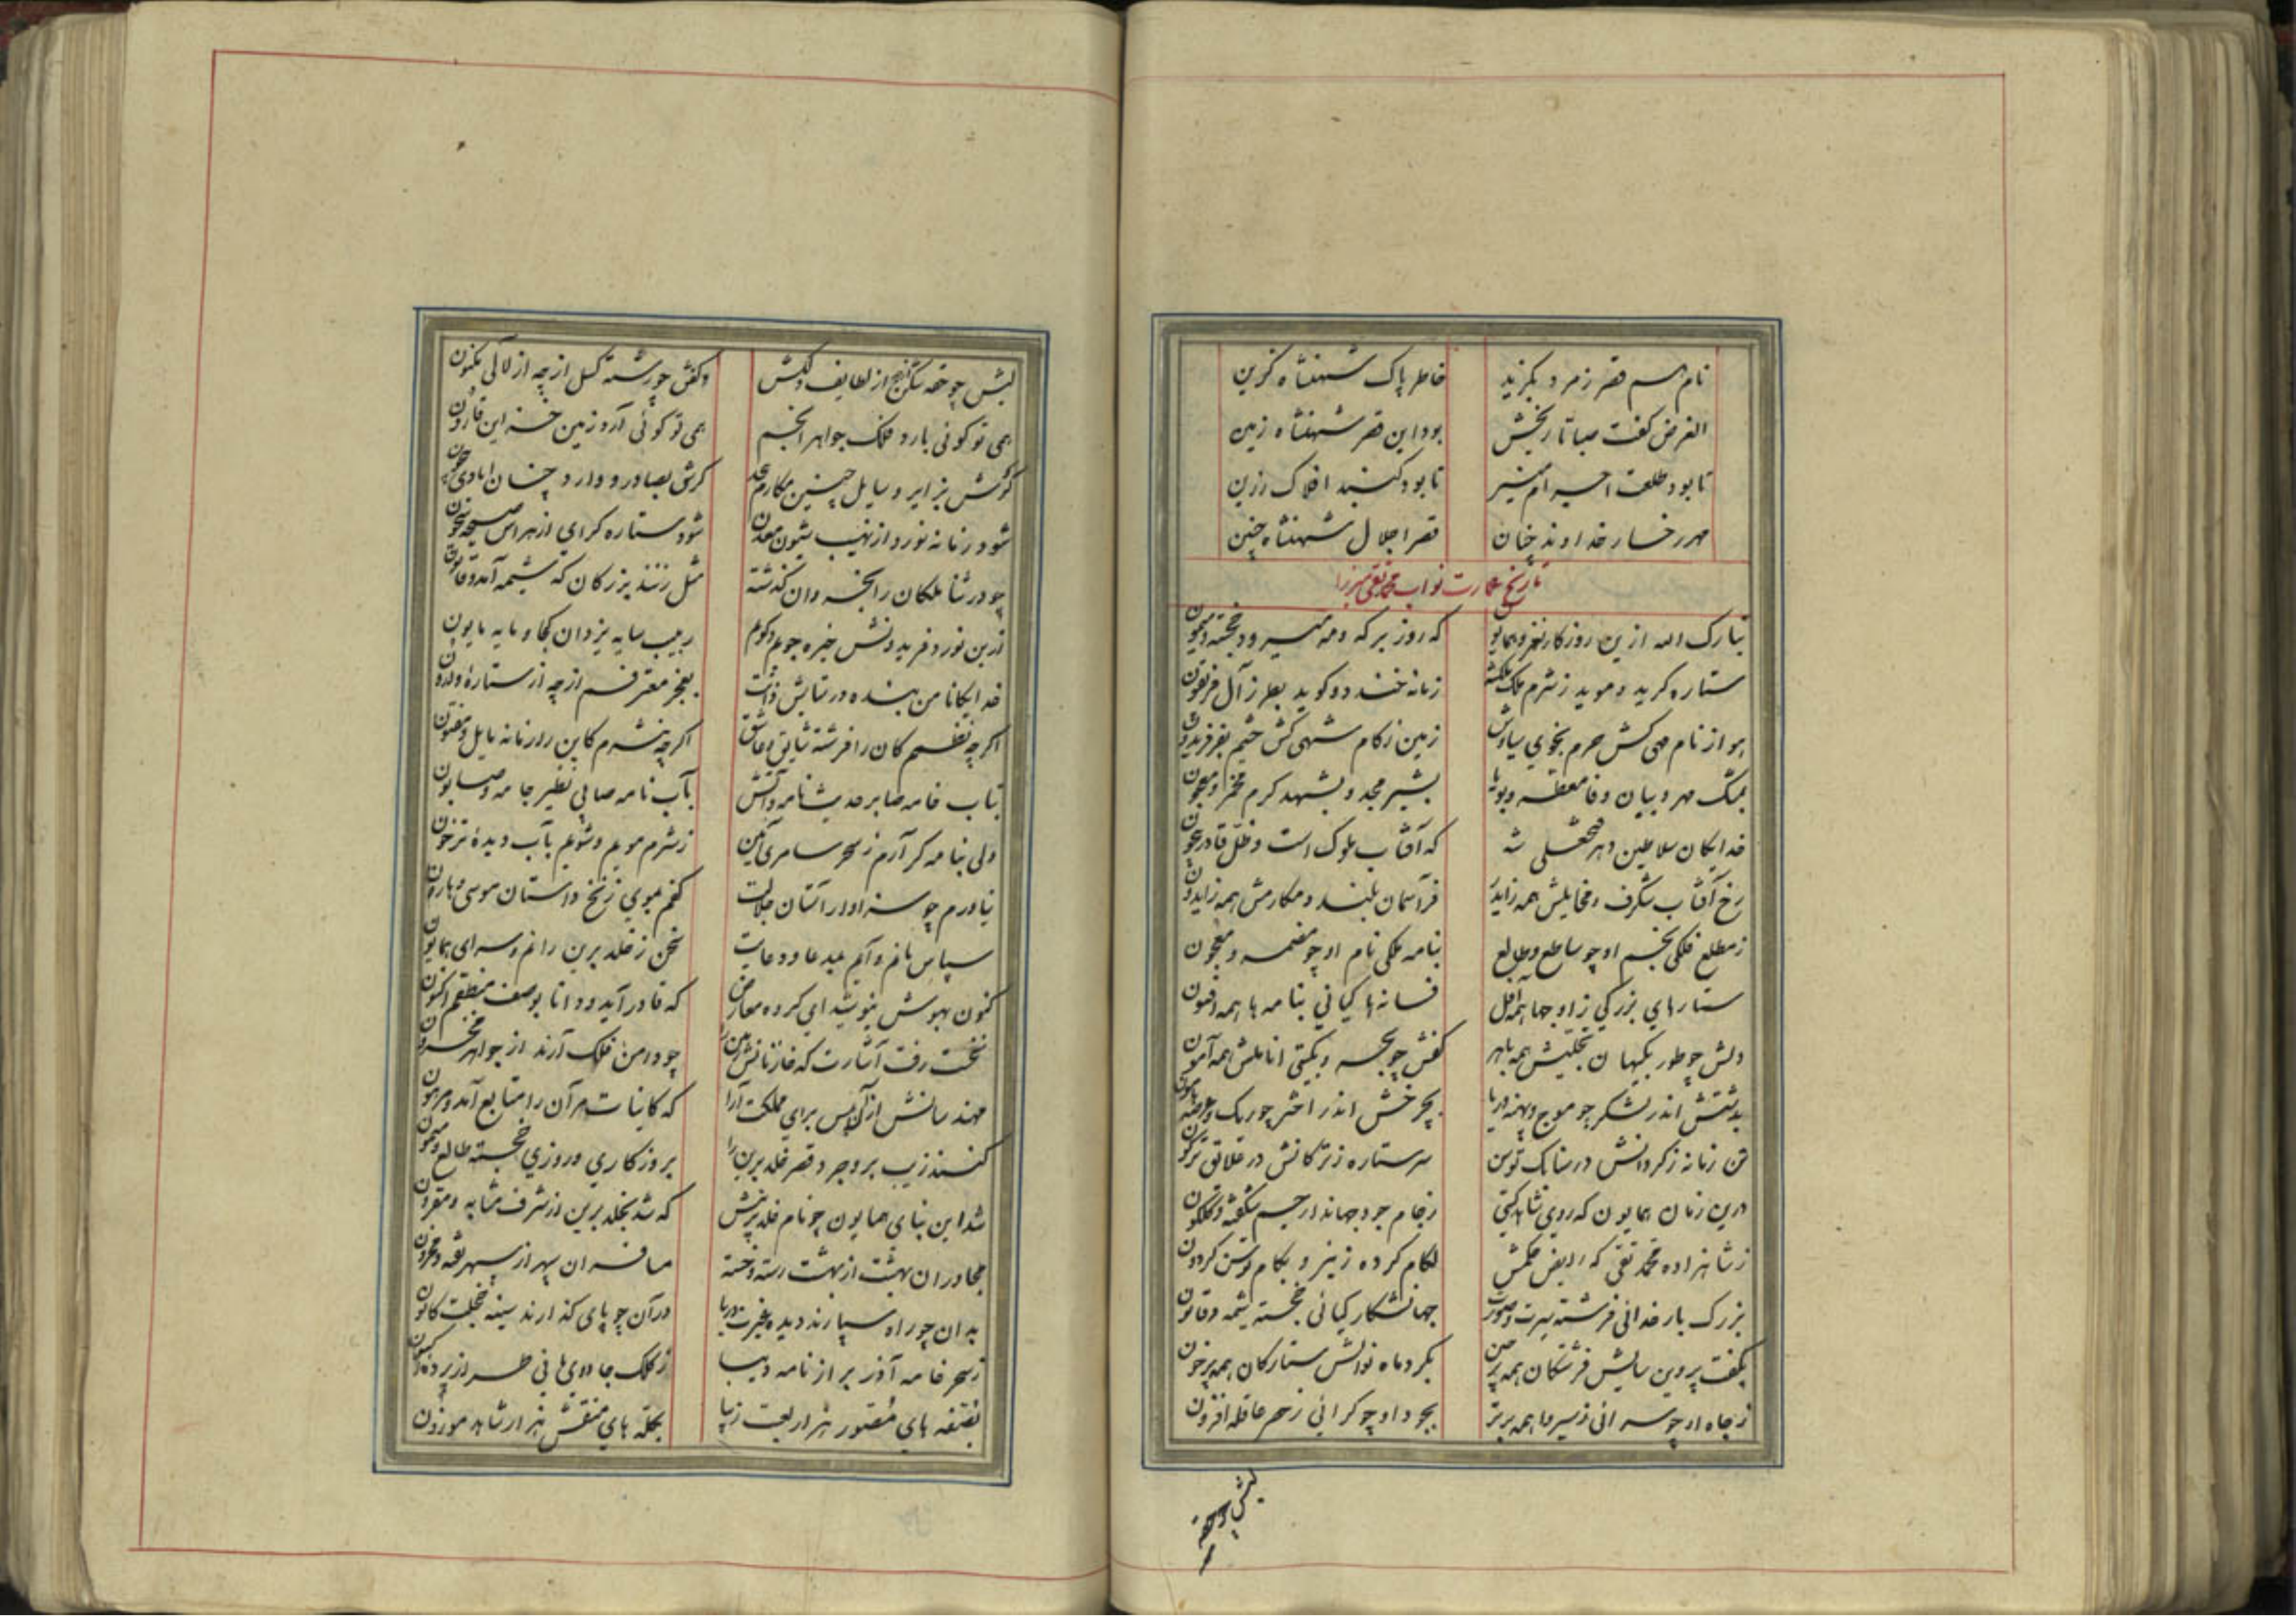 نام اسم قصر زمرد بگزید خاطر پاک شهنشاه گزین
الغرض گفت صبا تاریخش بود این قصر شهنشاه زمین
تا بود طلعت اجرام منیر تا بود گنبد افلاک رزین
مهر رخسار خداوند چنان قصر اجلال شهنشاه چنین
تاریخ عمارت نواب محمد تقی میرزا
تبارک الله ازین روزگار نغز و همایون که روز بر که و مه میرود خجسته و میمون
ستاره گرید و موید ز شرم ملک زمانه خندد و گوید بطرز آل فریغون
هوا ز نام مهی کش حرم بخوی سیاوش زمین ز کام شهی کش حشم بفر فریدون
بمشک مهر و بیان وفا معطر و بویا بشیر مجد و بشهد کرم مخمر و معجون
خدایگان سلاطین دهر فتحعلی شه که آفتاب ملوک است و ظل قادر بیچون
رخ آفتاب شگرف و مخایلش همه زاید فر آسمان بلند و مکارمش همه
ز مطلع فلکی نجم او چو ساطع و طالع بنامه ملکی نام او چو مضمر و معجون
ستارهای بزرگی ز اوجها همه آفل فسانهای کیانی بنامه ها همه افسون
دلش چو طور بگیهان تجلیش همه باهر کفش چو بحر و بگیتی اناملش همه آمون
بدشتش اندر لشکر چو موج و پهنه دریا بچرخش اندر اختر چو ریگ و عرصه هامون
تن زمانه ز گردانش در سنابک توسن سر ستاره ز ترکانش در علایق
درین زمان همایون که روی شاهد گیتی ز جام جود جهاندار چهر شگفته و گلگون
ز شاهزاده محمد تقی که رایض حکمش لگام کرده ز نیرو بکام توسن گردون
بزرگ بار خدائی فرشته سیرت و صورت جهانشکار کیانی خجسته شیمه و قانون
بکفت پروین سایش فرشتگان همه بگرد ماه نوالش ستارگان همه پرخون
ز جاه او چو سرائی ز سیر وا همه برتر بجود او چو گرائی ز حصر عاقله افزون
لبش چو حقه
لبش چو حقه شکن نهج از لطایف دلکش و کفش چو رشته گسل از چه از لآلی مکنون
همی تو گوئی بارد فلک جواهر انجم همی تو گوئی آرد زمین خزاین قارون
گرش بزایر و سایل چنین مکارم گرش بصادر و وارد چنان ایادی
شود زمانه نورد از نهیب شود ستاره گرای از هراس
چو در ثنا ملکان را بخسروان گذشته مثل زنند بزرگان که شیمه آمد و قانون
ازین نورد فریدونش خیره جویم و گویم ربیب سایه یزدان کجا و مایه مایون
خدایگانا من بنده در ستایش ذاتت بعجز معترفم ار چه از ستاره ولدون
اگر چه نظم کان را فرشته شایق و عاشق اگر چه نثرم کاین را زمانه مایل و مفتون
بتاب خامه صابر حدیث نامه و آتش بآب نامه صابی نظیر جامه و صابون
ولی بنامه گر آرم ز سحر سامری آیین ز شرم مویم و شویم بآب دیده
نیاورم چو سزاوار آستان جلالت کنم بموی زنخ داستان موسی و هارون
سپاس نام و آیم بمدعا و دعایت سخن ز خلد برین رانم و سرای همایون
کنون بهوش بنوشد ای کرده که قادر آید و دانا بوصف منطقم اکنون
نخست رفت اشارت که خازنانش چو دامن فلک آرند از جواهر
مهندسانش از آن پس برای مملکت آرا که کاینات مر آن را متابع آمد و مرهون
کنند زیب بروجرد قصر خلد برین را بروزگاری و روزی خجسته طالع و میمون
شد این بنای همایون چو نام خلد برینش که شد بخلد برین از شرف مشابه و مقرون
مجاوران بهشت از بهشت رسته و خسته مسافران سپهر از سپهر
بدان چو راه سپارند دیده غیرت دریا در آن چو پای گذارند سینه خجلت کانون
ز سحر خامه آذر بر از نامه دیبا ز کلک جادوی مانی طراز پرده
بغرفه های مصور هزار لعبت زیبا بحجله های منقش هزار شاهد موزون